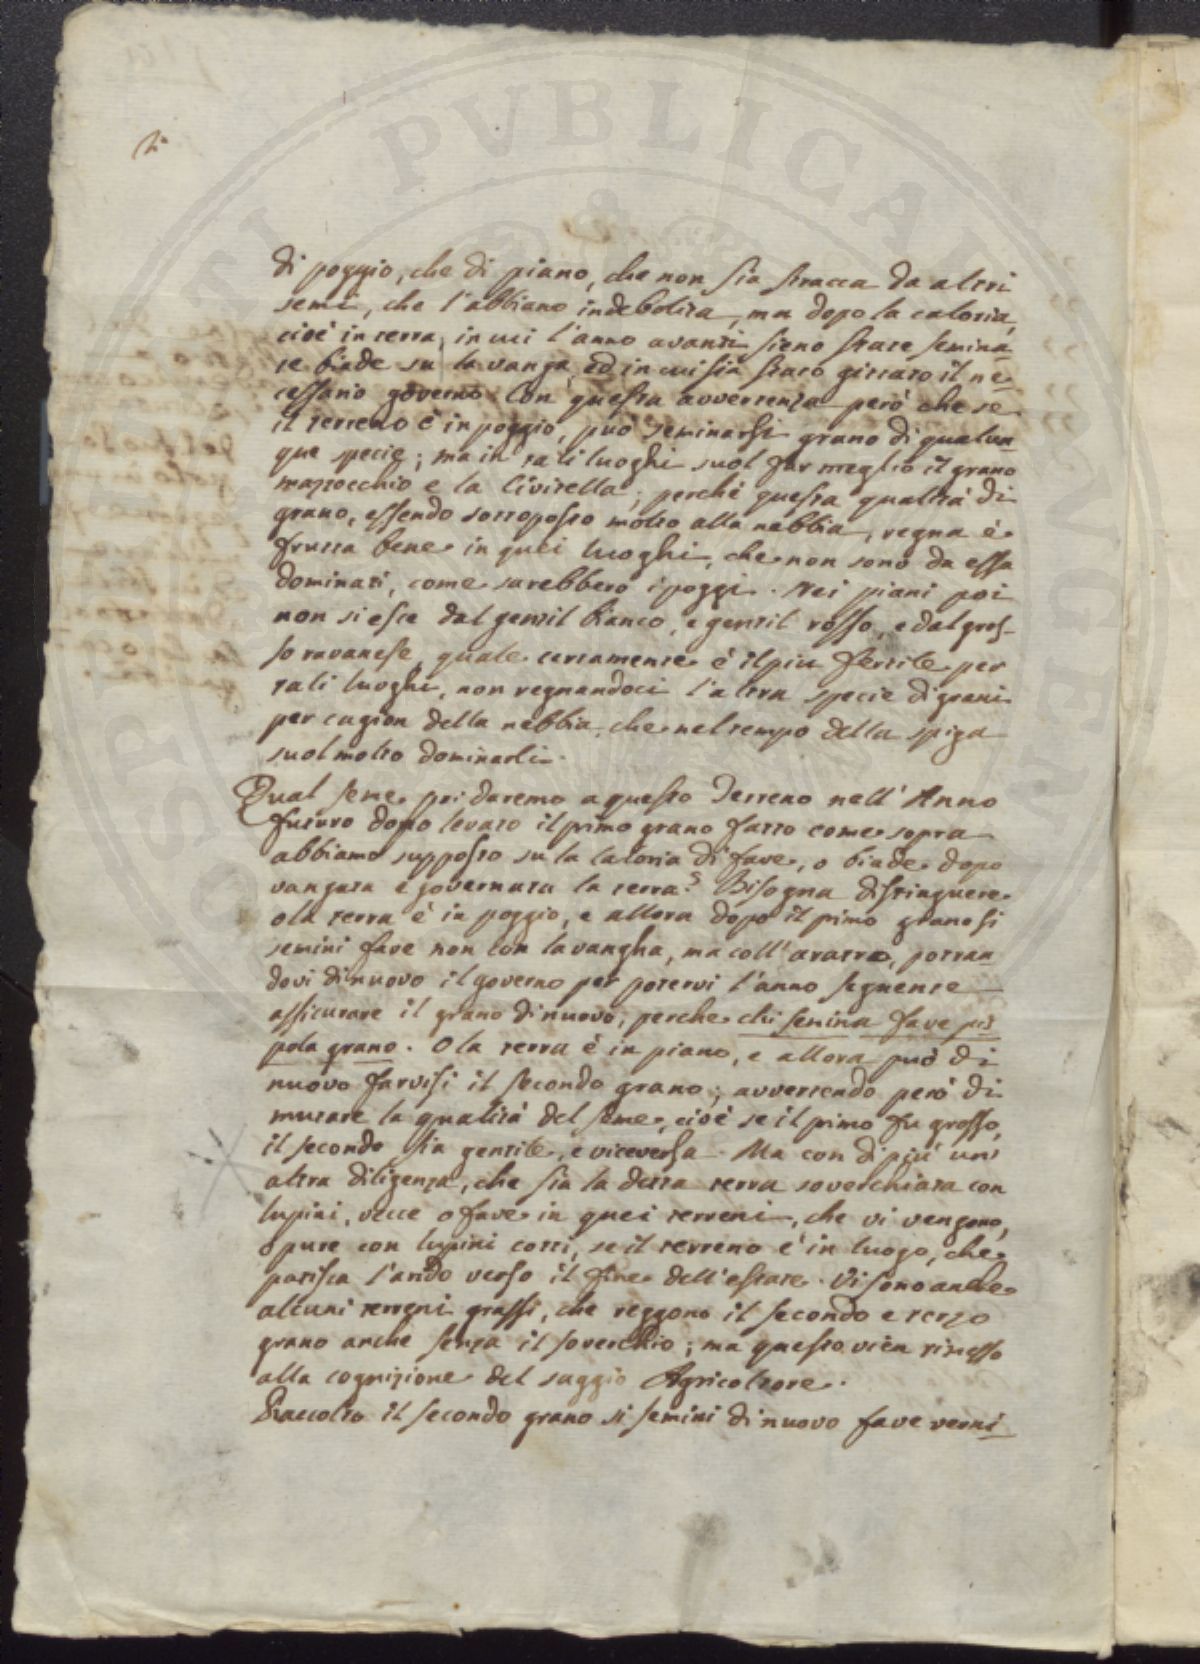 di poggio, che di piano, che non sia stracca da altri
semi, che l'abbiano indebolita, ma dopo la caloria,
cioè in terra, in cui l'anno avanti sieno state semina
te biade su la vanga, ed in cui sia stato gittato il ne
cessario governo. Con questa avvertenza però che se
il terreno è in poggio, può seminarsi grano di qualun
que specie; ma in tali luoghi suol far meglio il grano
mazzocchio e la Civitella; perchè questa qualità di
grano, essendo sottoposto molto alla nebbia, regna e
frutta bene in quei luoghi, che non sono da essa
dominati, come sarebbero i poggi. Nei piani poi
non si esce dal gentil bianco, e gentil rosso, e dal gros-
so ravanese, quale certamente è il piu fertile per
tali luoghi, non regnandoci l'altra specie di grani
per cagion della nebbia, che nel tempo della spiga
suol molto dominarli.
Qual seme poi daremo a questo Terreno nell'Anno
futuro dopo levato il primo grano fatto come sopra
abbiamo supposto su la caloria di fave, o biade dopo
vangata e governata la terra? Bisogna distinguere
o la terra è in poggio, e allora dopo il primo grano si
semini fave non con la vangha, ma coll'aratro, portan
dovi di nuovo il governo per potervi l'anno seguente
assicurare il grano di nuovo; perche chi semina fave pis
pola grano. O la terra è in piano, e allora può di
nuovo farvisi il secondo grano; avvertendo però di
mutare la qualità del seme, cioè se il primo fu grosso,
il secondo sia gentile, e viceversa. Ma con di più un'
altra diligenza, che sia la detta terra soverchiata con
lupini, vecce o fave in quei terreni, che vi vengono,
o pure con lupini cotti, se il terreno è in luogo, che
patisca l'arido verso il fine dell'estate. Vi sono anche
alcuni terreni grassi, che reggono il secondo e terzo
grano anche senza il soverchio; ma questo vien rimesso
alla cognizione del saggio Agricoltore.
Raccolto il secondo grano si semini di nuovo fave verni
PUBLICAE